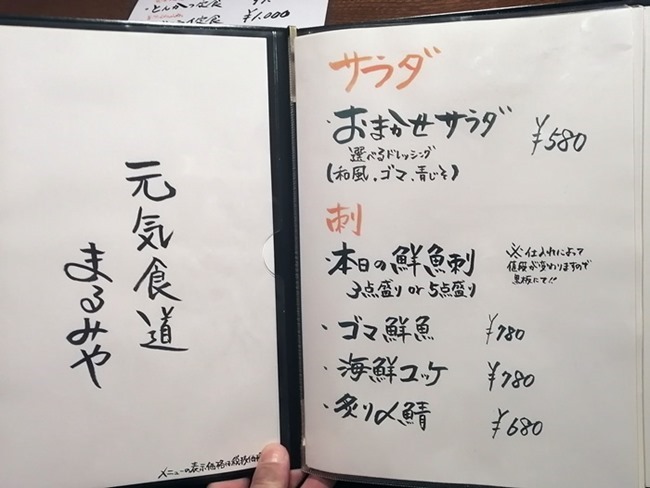 ・とんかつ定食
¥1,000
元気食道
まるみや
メニューの表示価格は税抜価格
サラダ
・おまかせサラダ ¥580
選べるドレッシング
(和風、ゴマ、青じそ)
刺
・本日の鮮魚刺
3点盛り or 5点盛り
※仕入れによって
値段が変わりますので
黒板にて!!
・ゴマ鮮魚 ¥780
・海鮮ユッケ ¥780
・炙り〆鯖 ¥680